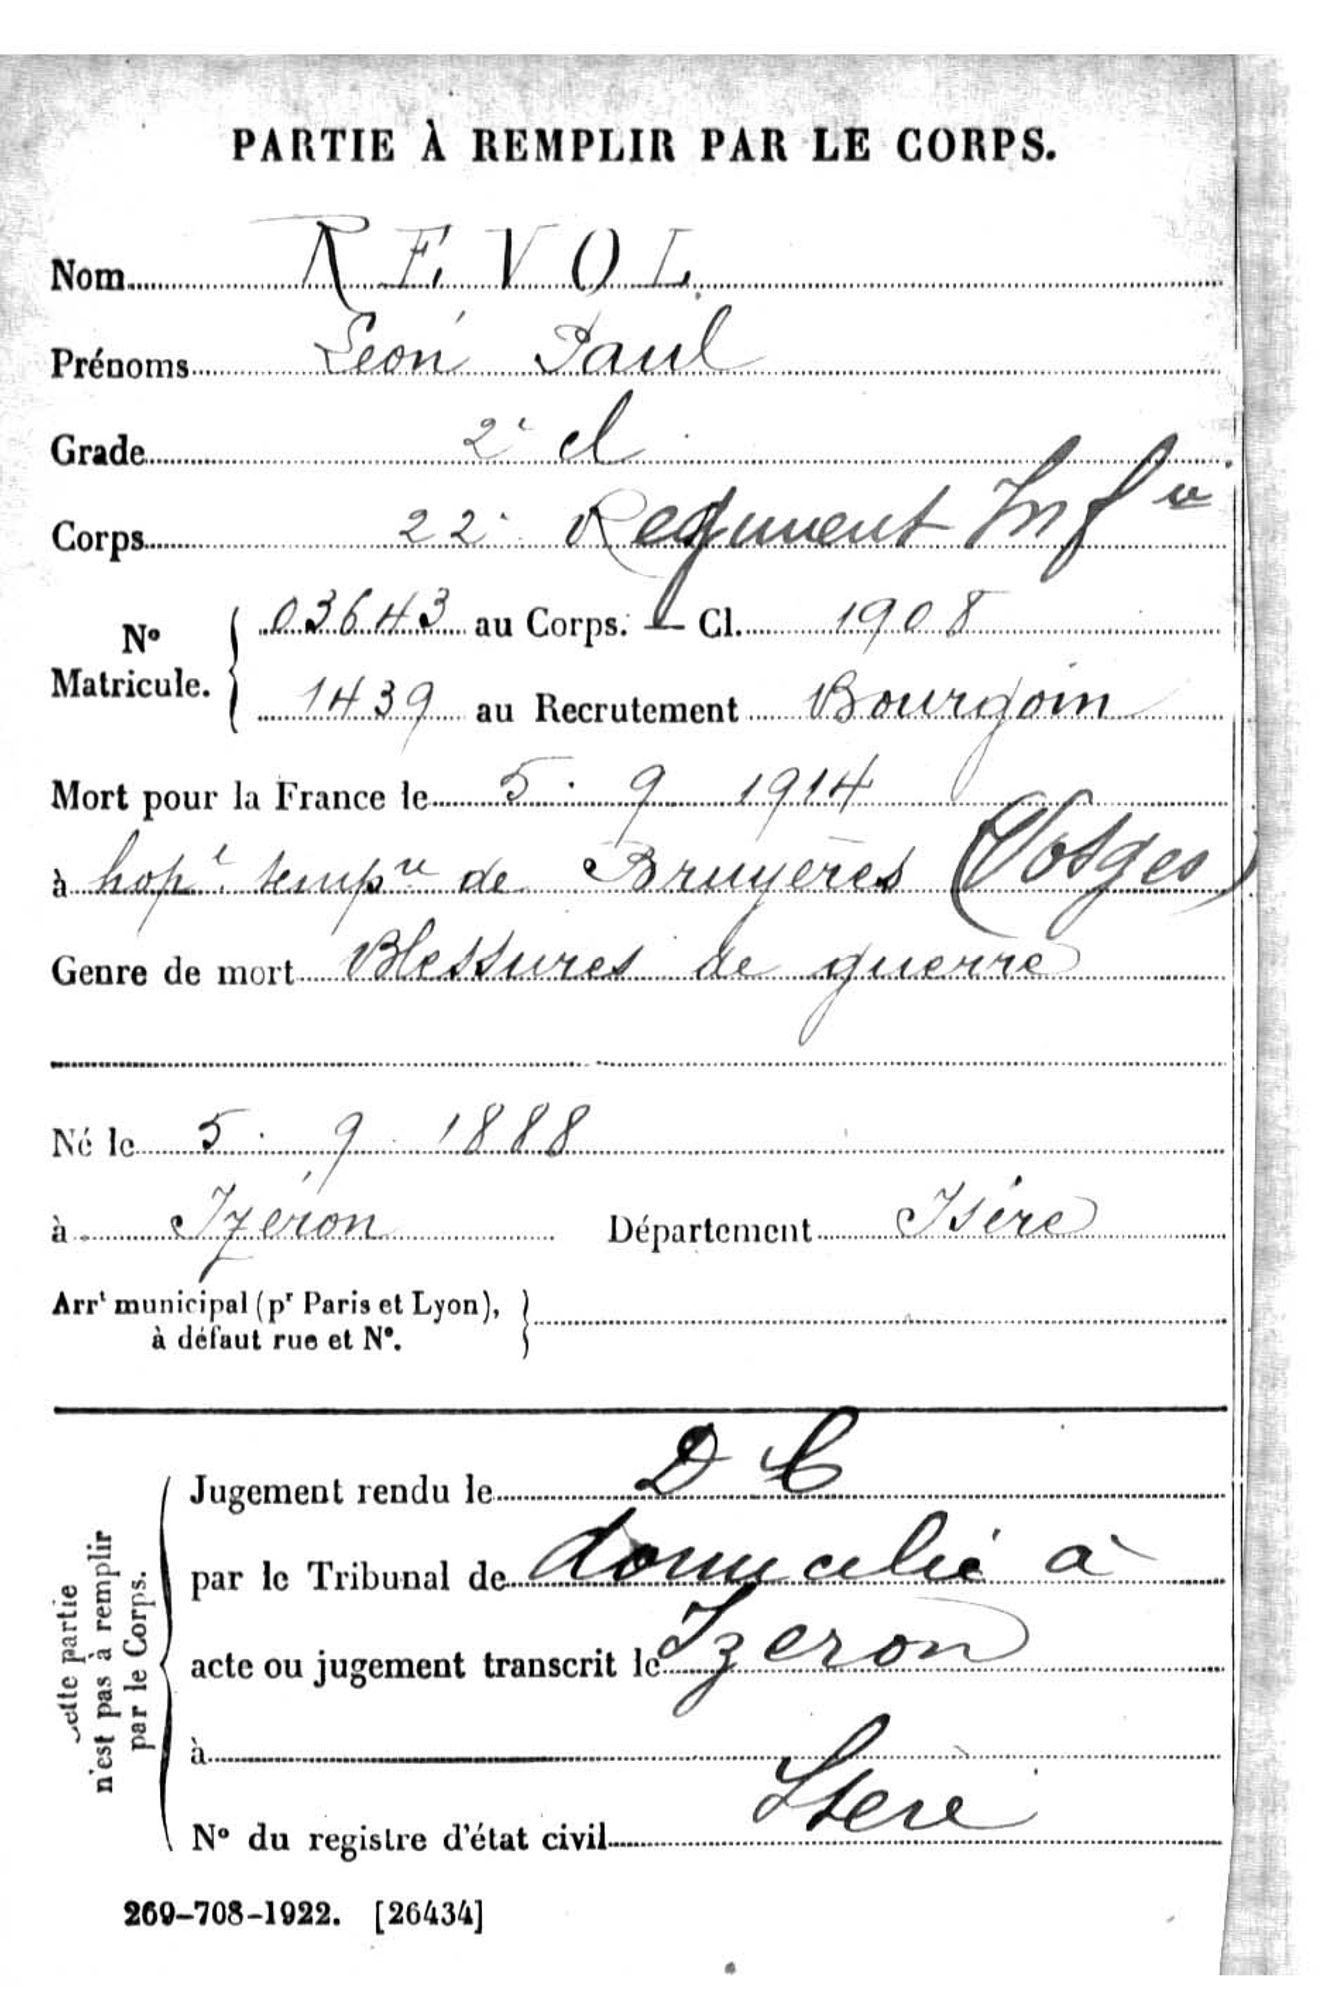 PARTIE À REMPLIR PAR LE CORPS.
Nom REVOL
Prénoms Léon Paul
Grade 2e cl
Corps 22e Regiment Infie
No Matricule. { 03643 au Corps. — Cl. 1908
1439 au Recrutement Bourgoin
Mort pour la France le 5 . 9 1914
à hopt tempre de Bruyères (Vosges)
Genre de mort Blessures de guerre
Né le 5 . 9 . 1888
à Izéron Département Isère
Arrt municipal (pr Paris et Lyon),
à défaut rue et No. }
Cette partie
n'est pas à remplir
par le Corps.
Jugement rendu le D C
par le Tribunal de domicilié à
acte ou jugement transcrit le Izeron
à
No du registre d'état civil Isère
269-708-1922. [26434]